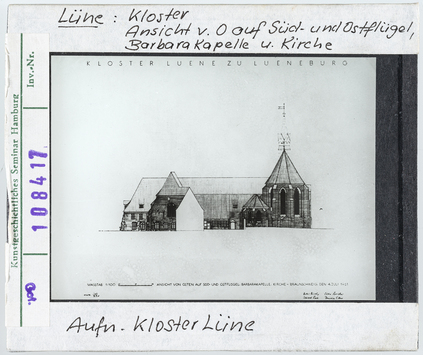 Lüne: Kloster
Ansicht v. O auf Süd- und Ostflügel,
Barbarakapelle u. Kirche
KLOSTER LUENE ZU LUENEBURG
Kunstgeschichtliches Seminar Hamburg
Inv.-Nr.
108417
ANSICHT VON OSTEN AUF SÜD- UND OSTFLÜGEL, BARBARAKAPELLE, KIRCHE
Aufn. Kloster Lüne